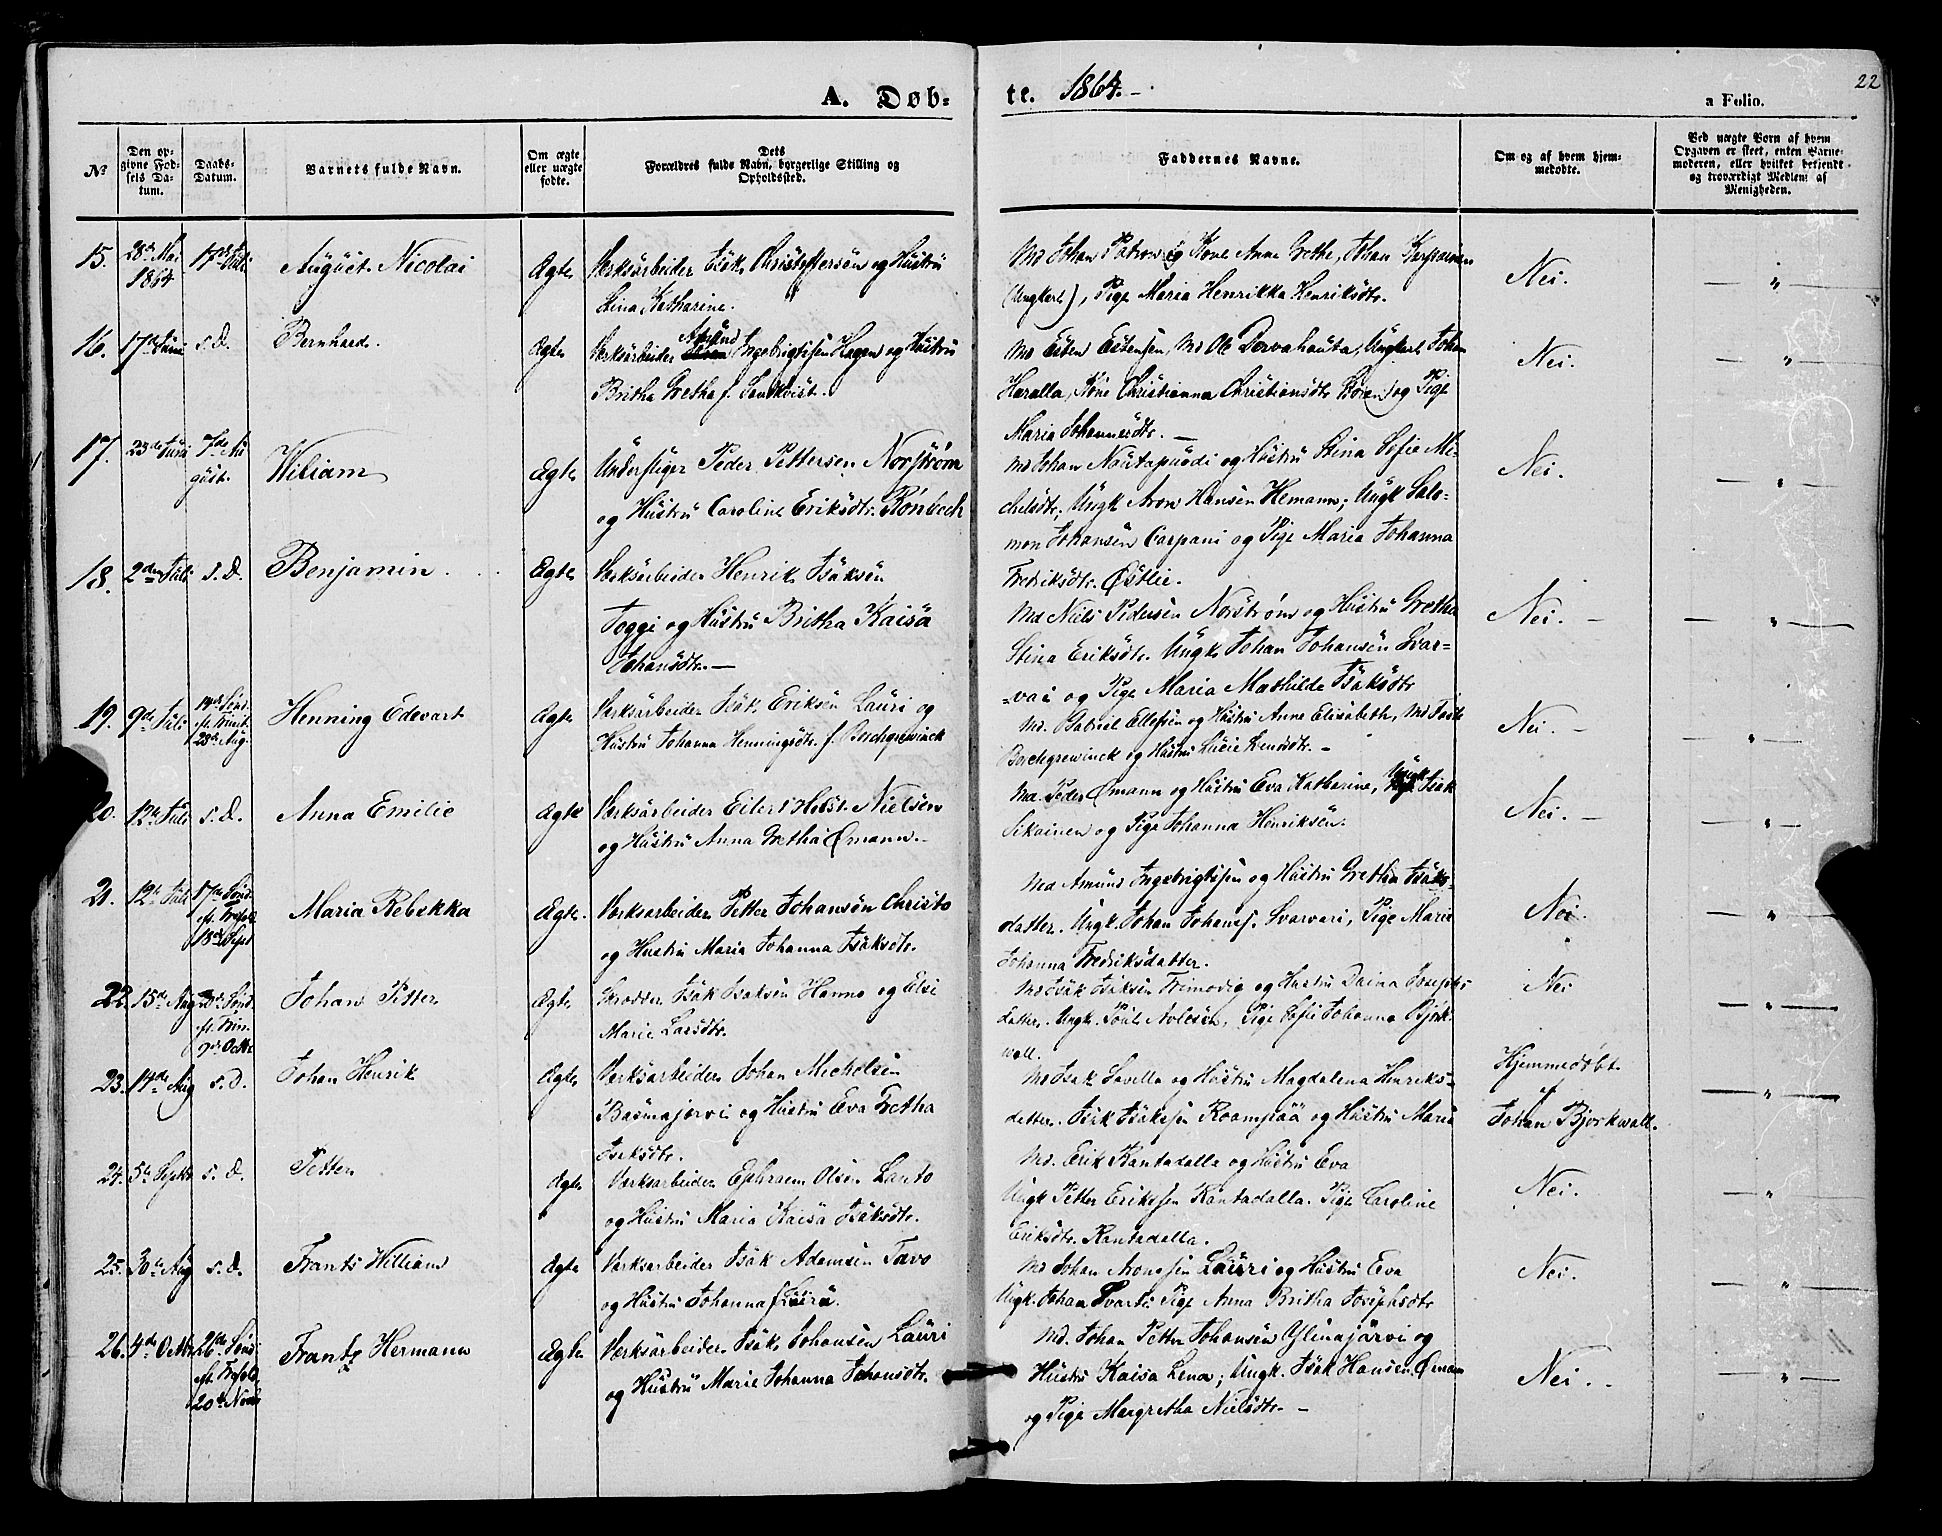 A. Døb-
te. 1864.-
22
a Folio.
№
Den op-
givne Fød-
sels Da-
tum.
Daabs-
Datum.
Barnets fulde Navn.
Om ægte
eller uægte
fødte.
Dets
Forældres fulde Navn, borgerlige Stilling og
Opholdssted.
Faddernes Navne.
Om og af hvem hjem-
medøbte.
Ved uægte Børn af hvem
Opgaven er skeet, enten Barne-
moderen, eller hvilket bekjendt
og troværdigt Medlem af
Menigheden.
15. 28de Mai
1864
August Nicolai
Ægte
Værksarbeider Isak Christophersen og Hustru
Stina Katharine.
Md Johan Patron og Kone Anne Grethe, Johan
(Ungkarl), Pige Maria Henrikka Henriksdtr.
Nei.
16. 17de Juni s. D.
Bernhard.
Ægte
Værksarbeider Amund Ingebrigtsen Hagen og Hustru
Britha Gretha f. Sandkvist.
Md Esten Estensen, Md Ole Dervahauta, Ungkarl Johan
Haralla, Kone Christianna Christiansdtr og Pige
Maria Johannesdtr. -
Nei.
17. 23de Juni 7de Au
gust.
Wiliam
Ægte
Understiger Peder Pettersen Norstrøm
og Hustru Caroline Eriksdtr. Rönbech
Md Johan Nautapuodi og Hustru Stina Sofie Mi-
chelsdtr; Ungk Aron Hansen Hemann; Ungk Salo-
mon Johansen Carpani og Pige Maria Johanna
Fredriksdtr. Østlie.
Nei.
18. 2den Juli s. D.
Benjamin.
Ægte
Værksarbeider Henrik Isaksen
Foggi og Hustru Britha Kaisa
Johansdtr. -
Md Niels Pedersen Norstrøm og Hustru Gretha
Stina Eriksdtr. Ungk Johan Johansen Svar-
-vai og Pige Maria Mathilde Isaksdtr
Nei. -
19. 9de Juli 14de Sønd.
ef. Trinit.
28de Aug.
Henning Edevart
Ægte
Værksarbeider Isak Eriksen Lauri og
Hustru Johanna Henningsdtr. f. Borchgrewinck
Md. Gabriel Ellefsen og Hustru Anne Elisabeth, Md
Borchgrewinck og Hustru Lucie -
Nei. -
20. 12te Juli s. D.
Anna Emilie
Ægte
Værksarbeider Eilert Holst Nielsen
og Hustru Anna Gretha Ømann.-
Md. Peder Ømann og Hustru Eva Katharine, Ungk Isak
Sikainen og Pige Johanna Henriksen.
Nei. -
21. 12te Juli 17de Sønd.
ef. Trefold.
18de Sept
Maria Rebekka
Ægte.
Værksarbeider Petter Johansen Christo
og Hustru Maria Johanna Isaksdtr.
Md Amund Ingebrigtsen og Hustru Gretha Isaks-
datter. Ungk. Johan Johans. Svarvari, Pige Marie
Johanna Fredriksdatter.
Nei.
22. 15de Aug Sønd.
ef. Trin.
9de Octbr
Johan Petter
Ægte
Skrædder Isak Isaksen Hanno og Elsi
Marie Larsdtr.
Md Isak Isaksen Frimodig og Hustru Daina Josephs
datter. Ungk. Poul, Pige Sofie Johanna Bjørk-
wall.
Nei
23. 14de Aug s. D.
Johan Henrik
Ægte
Værksarbeider Johan Michelsen
Basmajorvi og Hustru Eva Gretha
Isaksdtr.
Md Isak Savella og Hustru Magdalena Henriks-
datter. Isak Isaksen og Hustru Maria
Hjemmedøbt
af
Johan Bjørkwall.
24. 5te Septbr s. D.
Petter
Ægte
Værksarbeider Ephraem Olsen Lanto
og Hustru Maria Kaisa Isaksdtr.
Md. Erik Rantadalla og Hustru Eva
Ungk Petter Eriksen Rantadalla. Pige Caroline
Eriksdtr. Rantadalla.
Nei.
25. 30te Aug s. D.
Frants William
Ægte
Værksarbeider Isak Adamsen Tavo
og Hustru Johanna f Lauri.
Md Johan Aronsen Lauri og Hustru Eva
Ungk. Johan Svarti Pige Anna Britha Josephsdtr
Nei.
26. 4de Octbr 26de Sønd
ef. Trefold.
20de Novbr
Frantz Hermann
Ægte
Værksarbeider Isak Johansen Lauri
og Hustru Marie Johanna Johansdtr.
Md. Johan Petter Johansen Ylinajärvi og
Hustru Kaisa Lena; Ungk. Isak Hansen Ømann
og Pige Margretha Nielsdtr. -
Nei. -